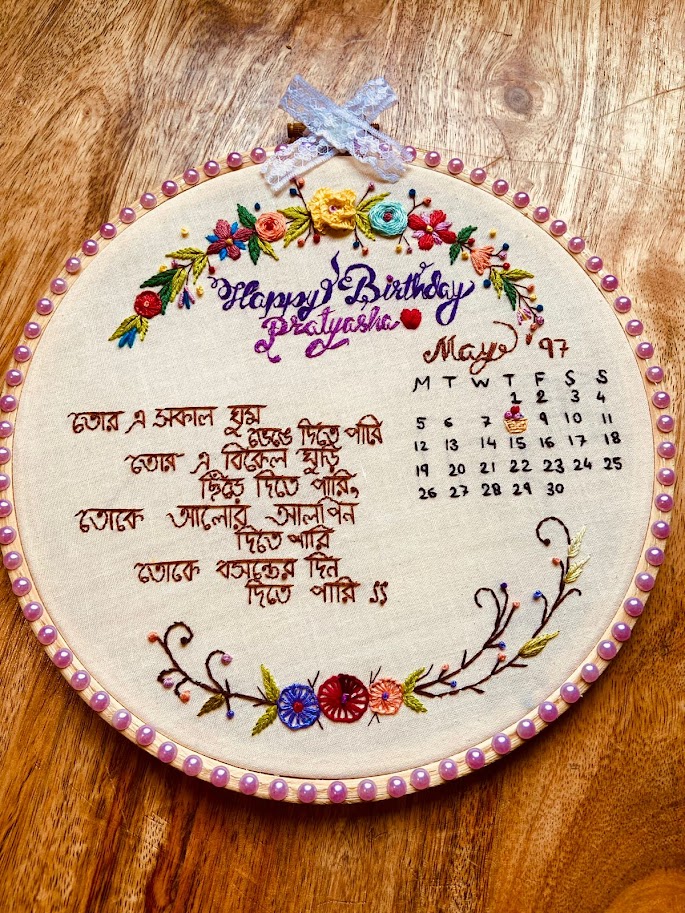 Happy Birthday
Pratyasha
May '97
M T W T F S S
1 2 3 4
5 6 7 9 10 11
12 13 14 15 16 17 18
19 20 21 22 23 24 25
26 27 28 29 30
তোর এ সকাল ঘুম
ভেঙে দিতে পারি
তোর এ বিকেল ঘুড়ি
ছিঁড়ে দিতে পারি,
তোকে আলোর আলপিন
দিতে পারি
তোকে বসন্তের দিন
দিতে পারি ঽঽ